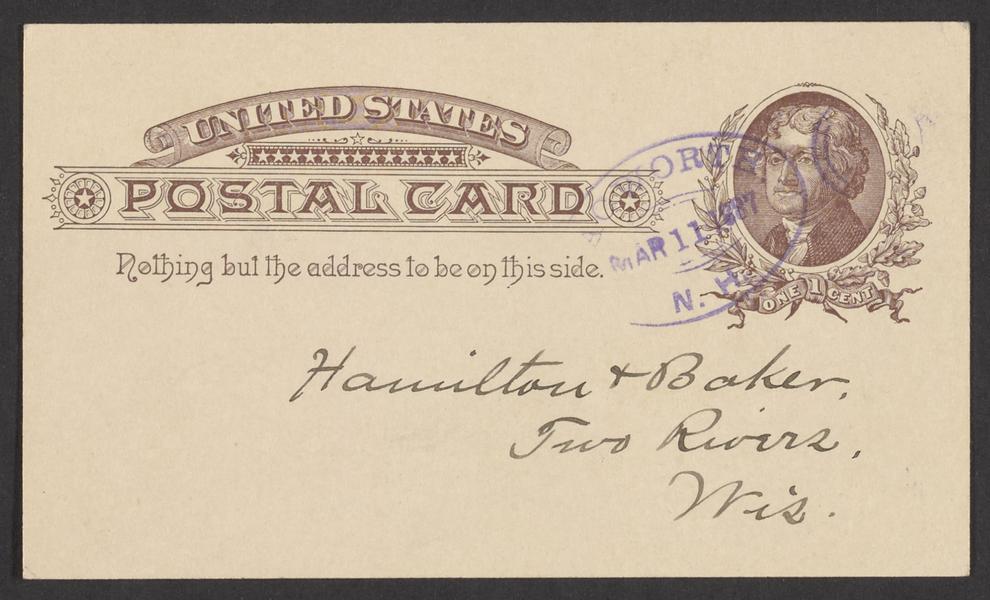 UNITED STATES
POSTAL CARD
Nothing but the address to be on this side.
MAR 11 1887
N. H.
ONE 1 CENT
Hamilton & Baker,
Two Rivers,
Wis.